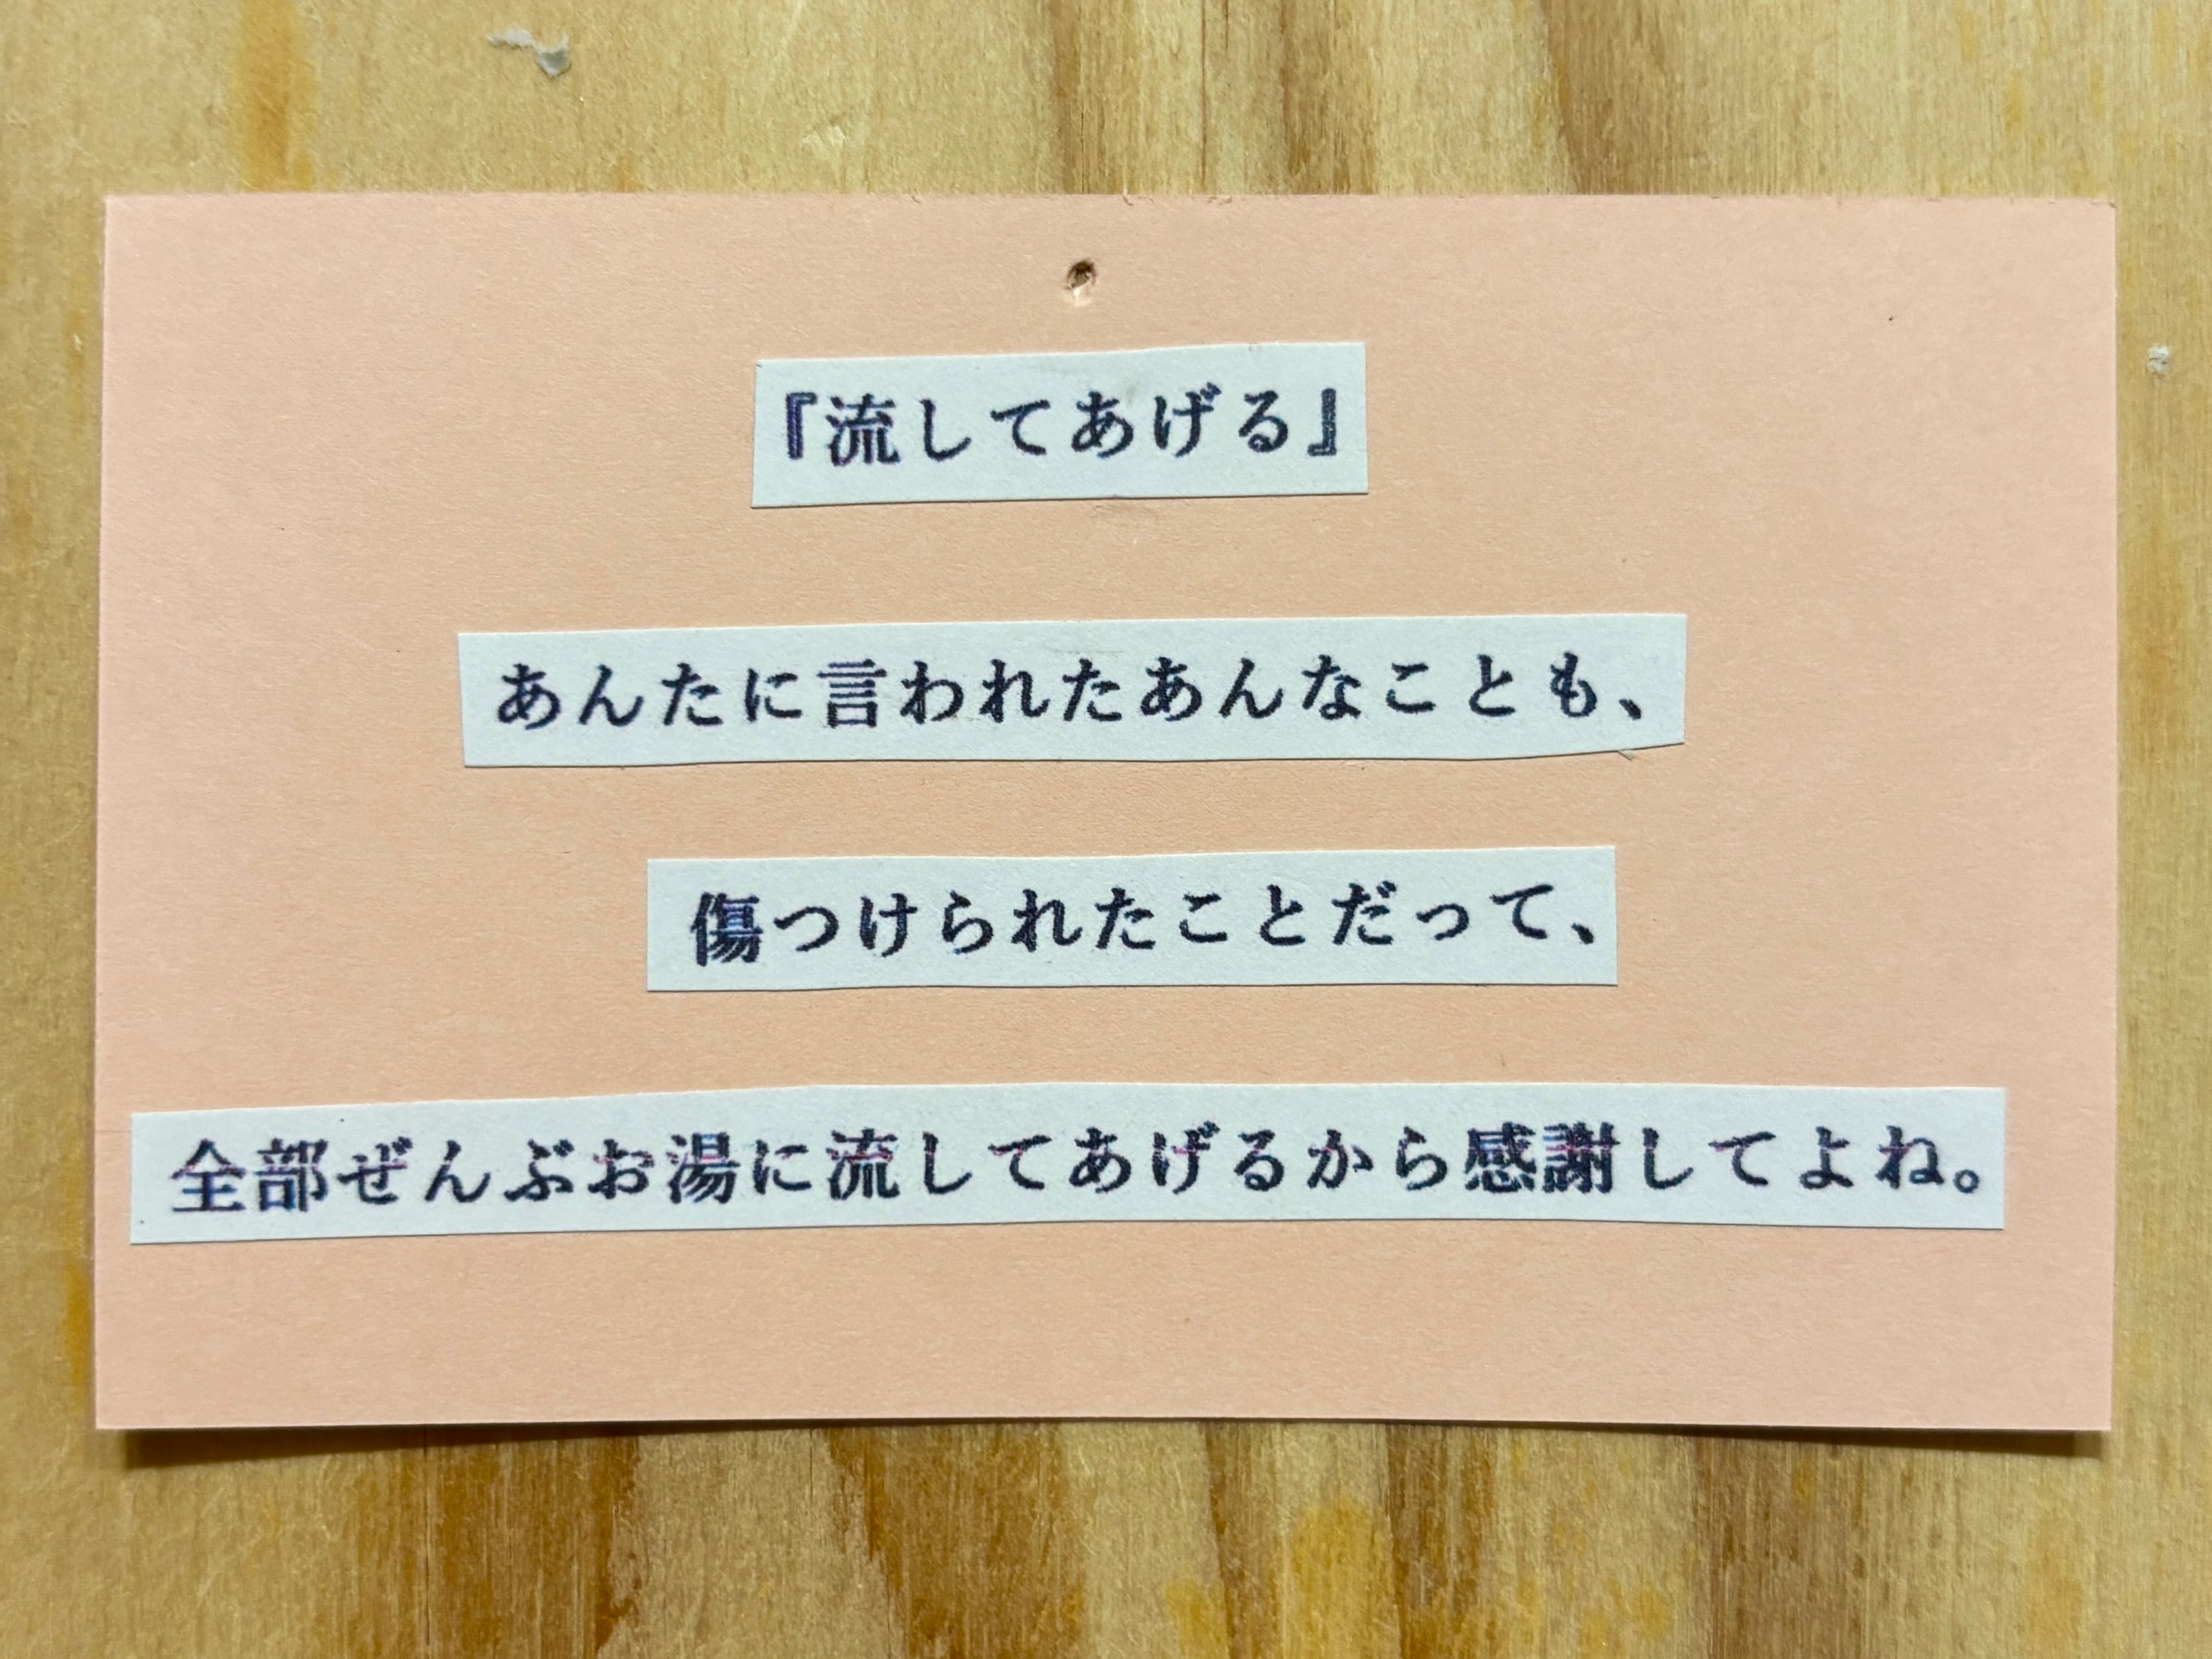 『流してあげる』
あんたに言われたあんなことも、
傷つけられたことだって、
全部ぜんぶお湯に流してあげるから感謝してよね。